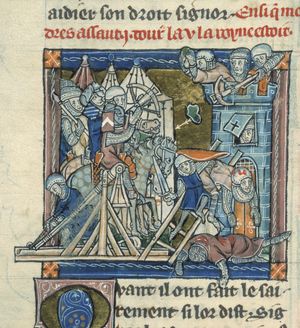 aidier son droit signor. Ensi q̃ me
dres assauty. tout la v la royne estoit.
Quant il ont fait le sai
rement si lor dist. Sig